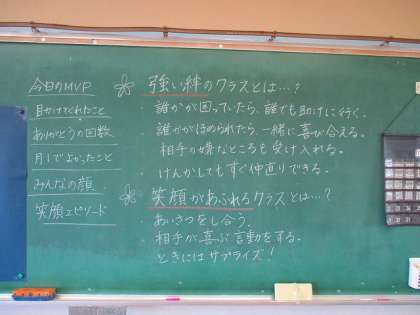 今日のMVP
目かけてくれたこと
ありがとうの回数
月1でよかったこと
みんなの顔
笑顔エピソード
強い絆のクラスとは…?
・誰かが困っていたら、誰でも助けに行く。
・誰かがほめられたら、一緒に喜び合える。
・相手の嫌なところも受け入れる。
・けんかしてもすぐ仲直りできる。
笑顔があふれるクラスとは…?
・あいさつをし合う。
・相手が喜ぶ言動をする。
・ときにはサプライズ!